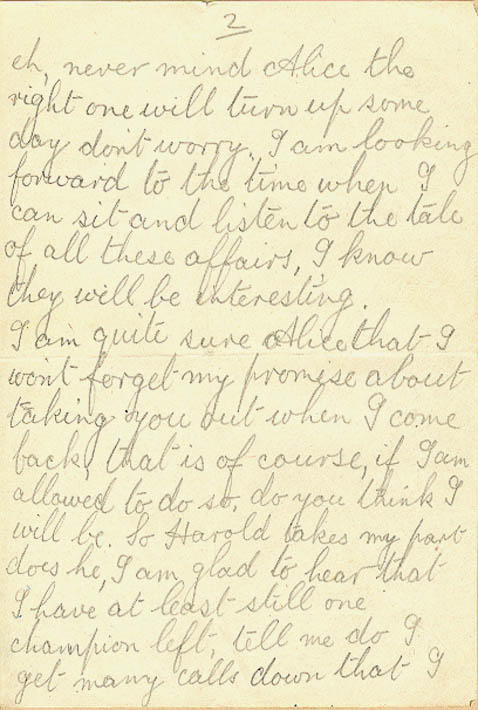 2
eh, never mind Alice the
right one will turn up some
day dont worry. I am looking
forward to the time when I
can sit and listen to the tale
of all these affairs, I know
they will be interesting.
I am quite sure Alice that I
wont forget my promise about
taking you out when I come
back, that is of course, if I am
allowed to do so, do you think I
will be. So Harold takes my part
does he, I am glad to hear that
I have at least still one
champion left, tell me do I
get many calls down that I